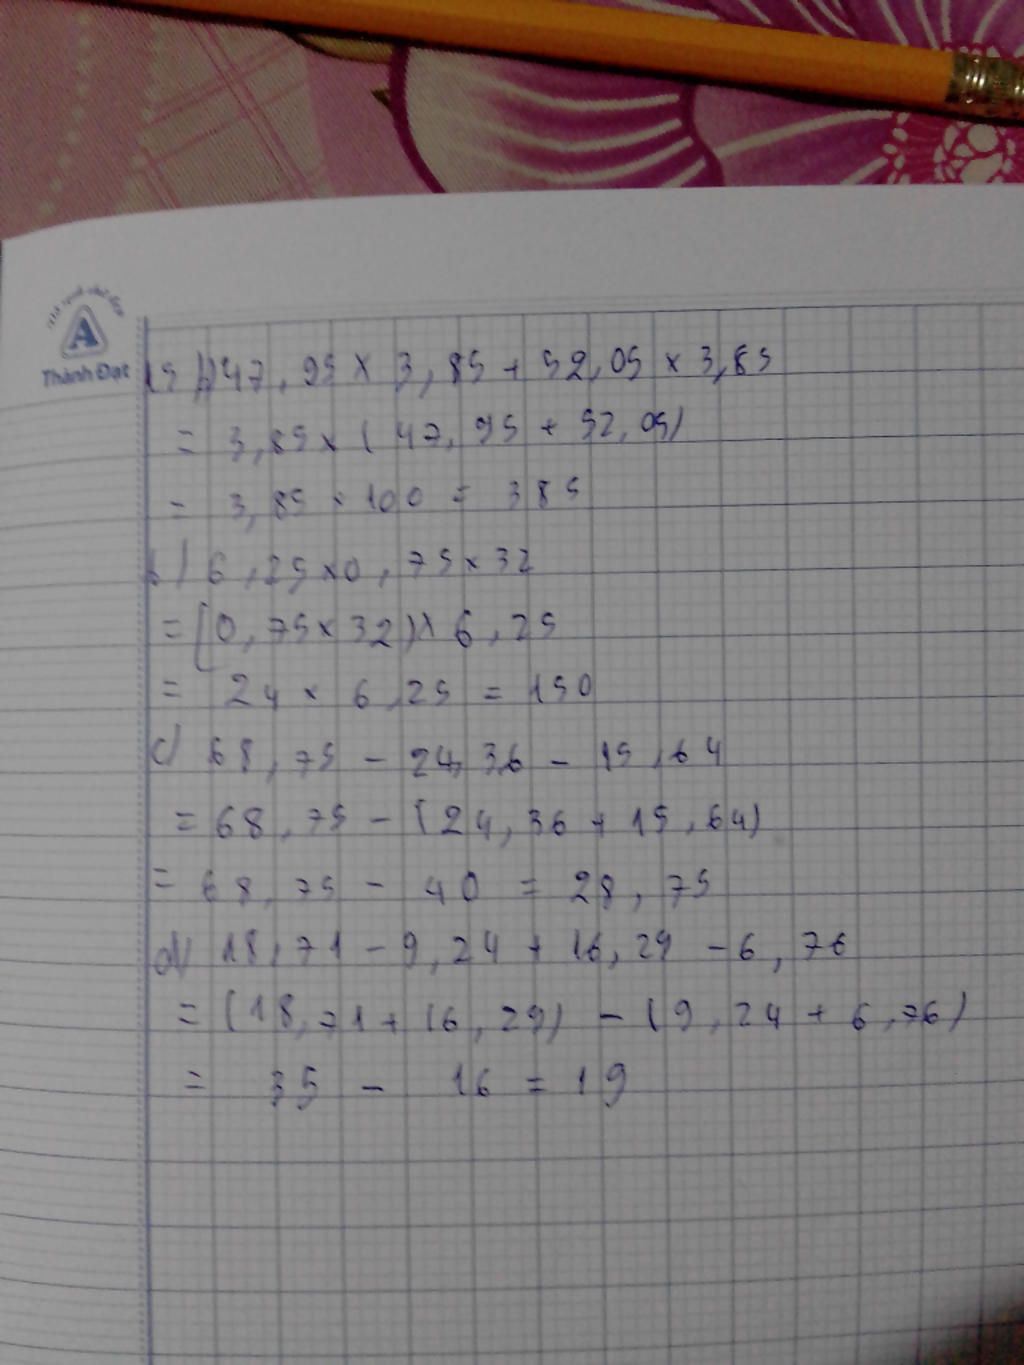 A
Thành Đạt
15) 47,95 × 3,85 + 52,05 × 3,85
= 3,85 × (47,95 + 52,05)
= 3,85 × 100 = 385
b) 6,25 × 0,75 × 32
= (0,75 × 32) × 6,25
= 24 × 6,25 = 150
c) 68,75 - 24,36 - 15,64
= 68,75 - (24,36 + 15,64)
= 68,75 - 40 = 28,75
d) 18,71 - 9,24 + 16,29 - 6,76
= (18,71 + 16,29) - (9,24 + 6,76)
= 35 - 16 = 19